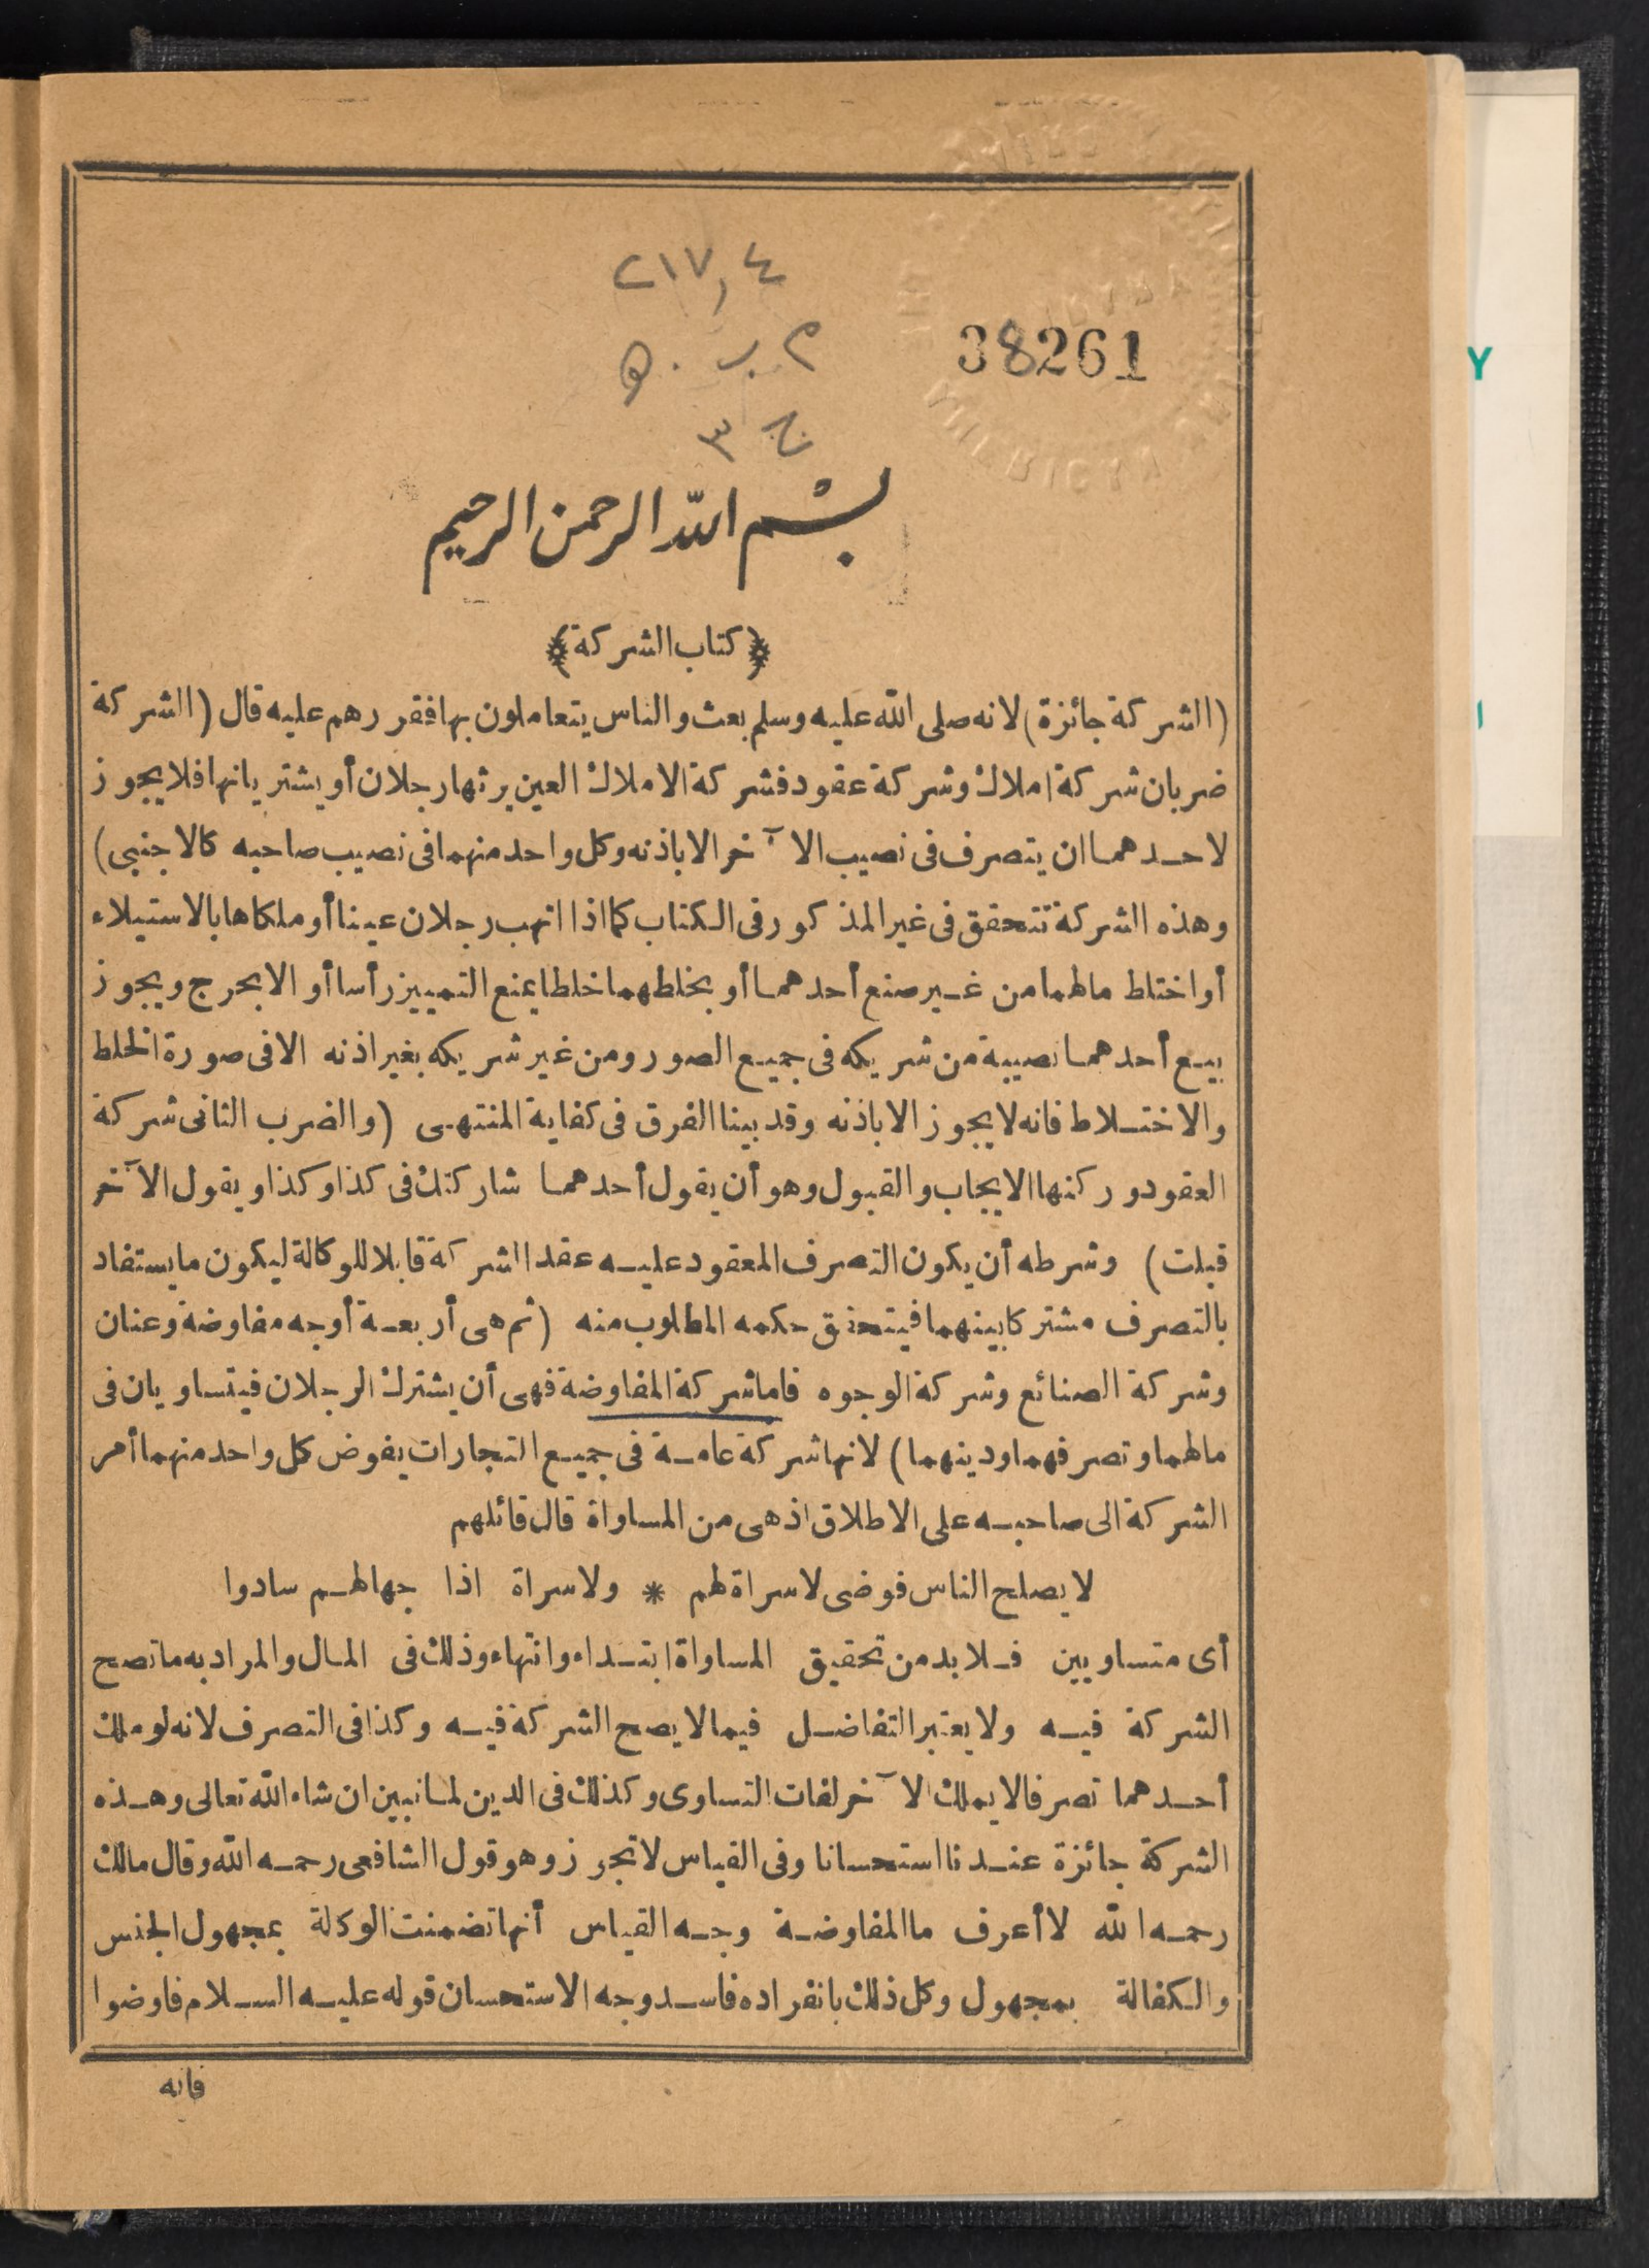 ٢١٧,٤
م ب . ه
ج ٣
38261
بسم الله الرحمن الرحيم
﴿كتاب الشركة﴾
(الشركة جائزة) لانه صلى الله عليه وسلم بعث والناس يتعاملون بها فقررهم عليه قال (الشركة
ضربان شركة املاك وشركة عقود فشركة الاملاك العين يرثها رجلان أو يشتريانها فلا يجوز
لاحدهما ان يتصرف فى نصيب الآخر الا باذنه وكل واحد منهما فى نصيب صاحبه كالاجنبى)
وهذه الشركة تتحقق فى غير المذكور فى الكتاب كما اذا اتهب رجلان عينا أو ملكاها بالاستيلاء
أو اختلط مالهما من غير صنع أحدهما أو بخلطهما خلطا يمنع التمييز رأسا أو الا بحرج ويجوز
بيع أحدهما نصيبه من شريكه فى جميع الصور ومن غير شريكه بغير اذنه الا فى صورة الخلط
والاختلاط فانه لا يجوز الا باذنه وقد بينا الفرق فى كفاية المنتهى (والضرب الثانى شركة
العقود وركنها الايجاب والقبول وهو أن يقول أحدهما شاركتك فى كذا وكذا ويقول الآخر
قبلت) وشرطه أن يكون التصرف المعقود عليه عقد الشركة قابلا للوكالة ليكون ما يستفاد
بالتصرف مشتركا بينهما فيتحقق حكمه المطلوب منه (ثم هى أربعة أوجه مفاوضة وعنان
وشركة الصنائع وشركة الوجوه فاما شركة المفاوضة فهى أن يشترك الرجلان فيتساويان فى
مالهما وتصرفهما ودينهما) لانها شركة عامة فى جميع التجارات يفوض كل واحد منهما أمر
الشركة الى صاحبه على الاطلاق اذ هى من المساواة قال قائلهم
لا يصلح الناس فوضى لا سراة لهم * ولا سراة اذا جهالهم سادوا
أى متساويين فلا بد من تحقيق المساواة ابتداء وانتهاء وذلك فى المال والمراد به ما تصح
الشركة فيه ولا يعتبر التفاضل فيما لا يصح الشركة فيه وكذا فى التصرف لانه لو ملك
أحدهما تصرفا لا يملك الآخر لفات التساوى وكذلك فى الدين لما نبين ان شاء الله تعالى وهذه
الشركة جائزة عندنا استحسانا وفى القياس لا تجوز وهو قول الشافعى رحمه الله وقال مالك
رحمه الله لا أعرف ما المفاوضة وجه القياس أنها تضمنت الوكالة بمجهول الجنس
والكفالة بمجهول وكل ذلك بانفراده فاسد وجه الاستحسان قوله عليه السلام فاوضوا
فانه